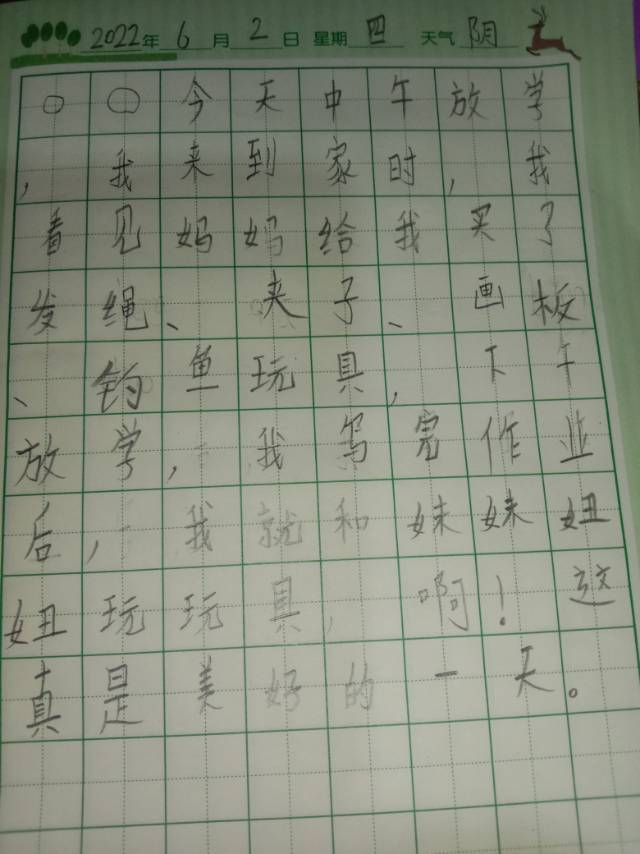 2022年6月2日 星期四 天气阴
○○今天中午放学
，我来到家时，我
看见妈妈给我买了
发绳、夹子、画板
、钓鱼玩具，下午
放学，我写完作业
后，我就和妹妹妞
妞玩玩具，啊！这
真是美好的一天。